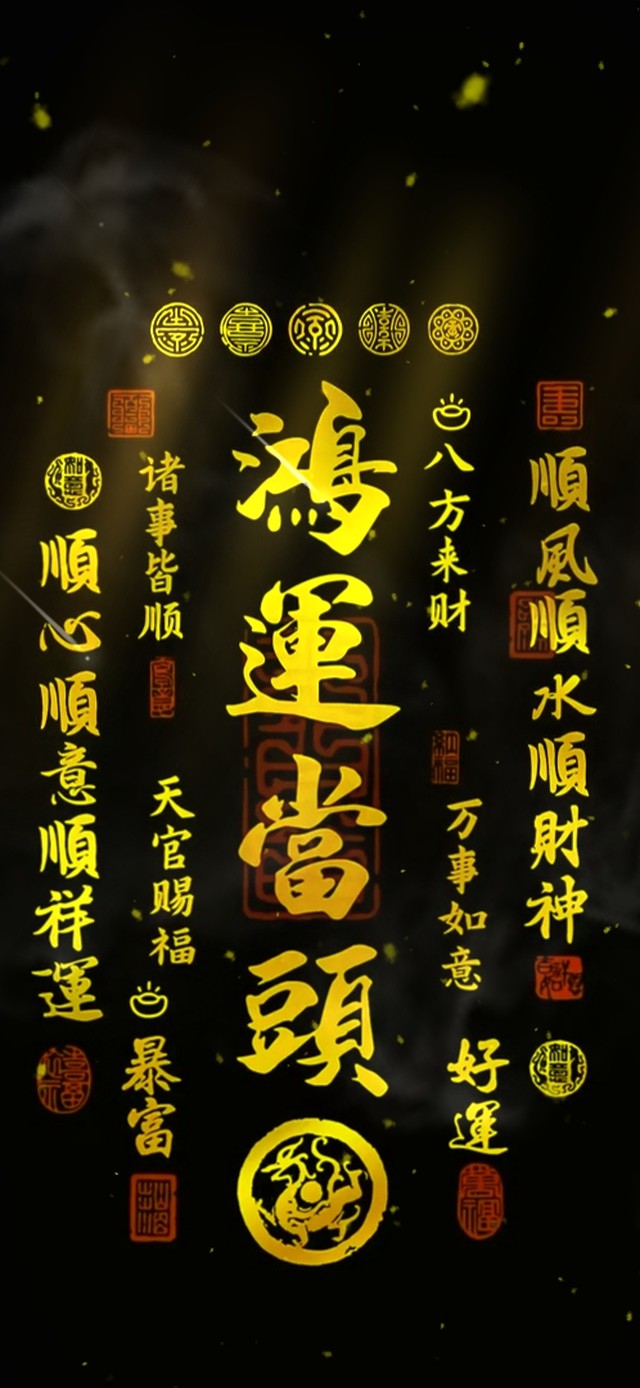 順風順水順財神
八方来财
万事如意
好運
鴻運當頭
诸事皆顺
天官赐福
暴富
順心順意順祥運